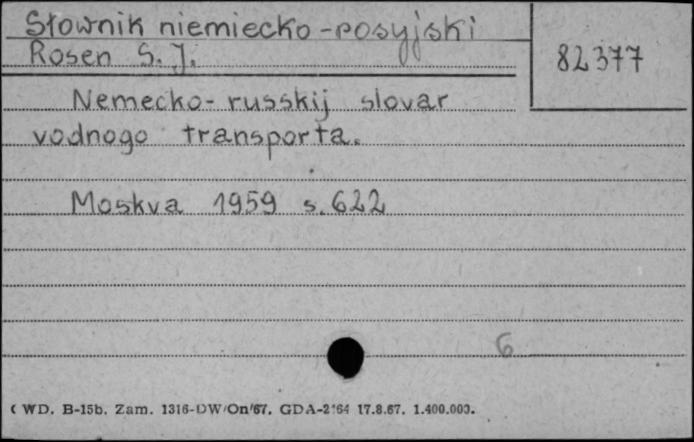 Słownik niemiecko-rosyjski
Rosen S. J.
82377
Nemecko-russkij slovar
vodnogo transporta.
Moskva 1959 s. 622
6
( WD. B-15b. Zam. 1316-DW/On/67. GDA-2/64 17.8.67. 1.400.000.